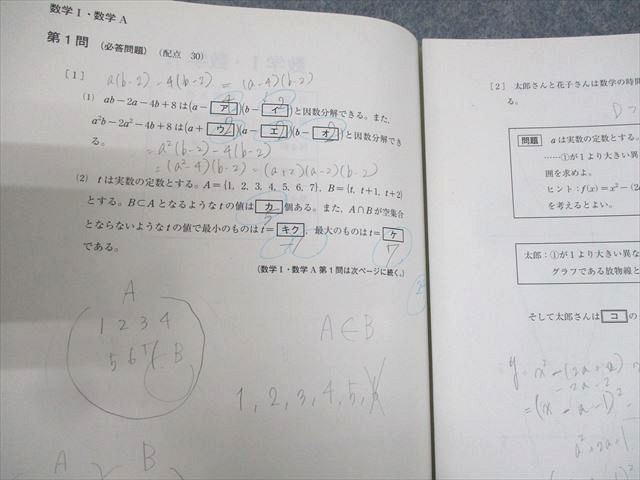 数学Ⅰ・数学A
第1問 (必答問題) (配点 30)
[1]
a(b-2)-4(b-2) = (a-4)(b-2)
(1) ab-2a-4b+8は(a-ア)(b-イ)と因数分解できる。また，
a²b-2a²-4b+8は(a+ウ)(a-エ)(b-オ)と因数分解でき
る。
=a²(b-2)-4(b-2)
=(a²-4)(b-2)=(a+2)(a-2)(b-2)
(2) tは実数の定数とする。A={1, 2, 3, 4, 5, 6, 7}, B={t, t+1, t+2}
とする。B⊂Aとなるようなtの値はカ個ある。また，A∩Bが空集合
とならないようなtの値で最小のものはt=キク，最大のものはt=ケ
である。
7
(数学Ⅰ・数学A 第1問は次ページに続く。)
A
1 2 3 4
5 6 7
B
A∈B
1, 2, 3, 4, 5, 6
A
B
[2] 太郎さんと花子さんは数学の時間
る。
問題 aは実数の定数とする。
……①が1より大きい異
囲を求めよ。
ヒント：f(x)=x²-(2a
を考えるとよい。
太郎：①が1より大きい異な
グラフである放物線と
そして太郎さんはコの